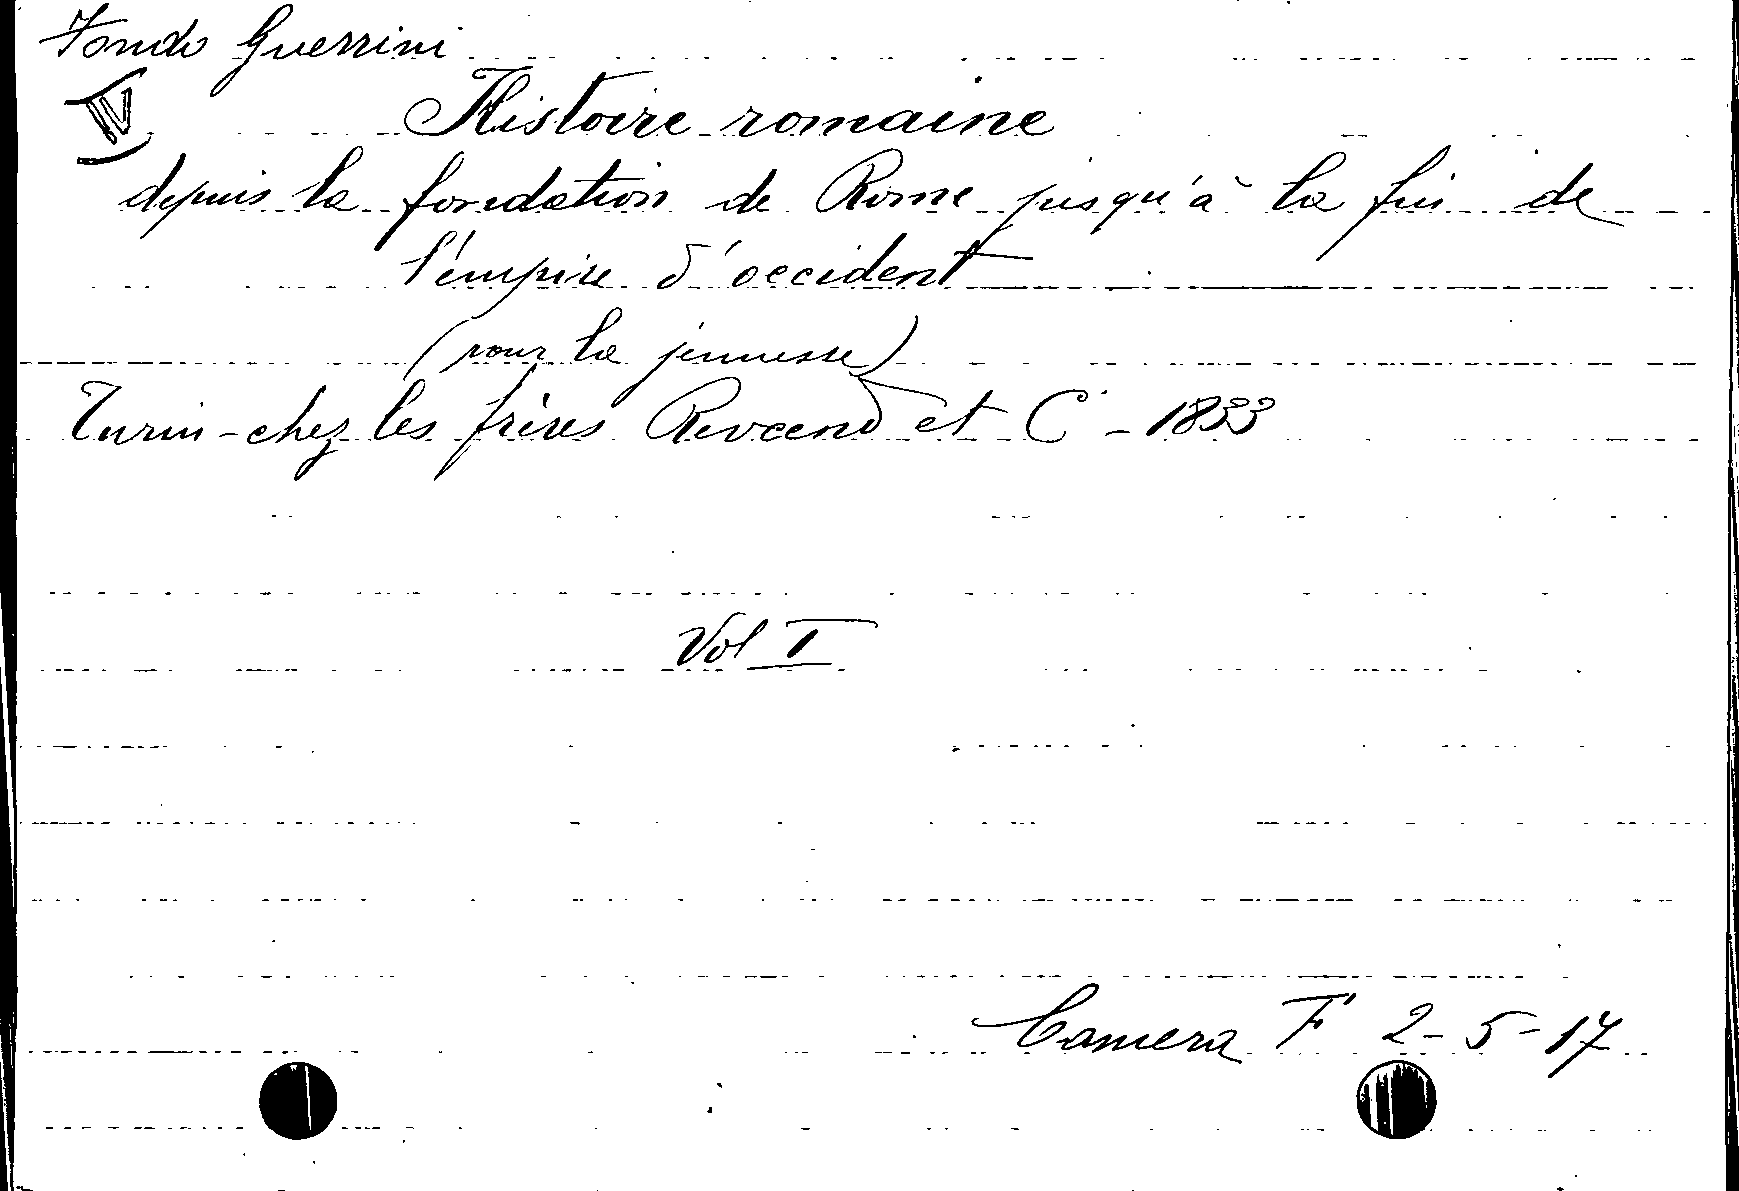 Fondo Guerrini
IV
Histoire romaine
depuis la fondation de Rome jusqu'à la fin de
l'empire d'occident
(pour la jeunesse)
Turin - chez les frères Reycend et C. - 1833
Vol I
Camera F 2-5-17